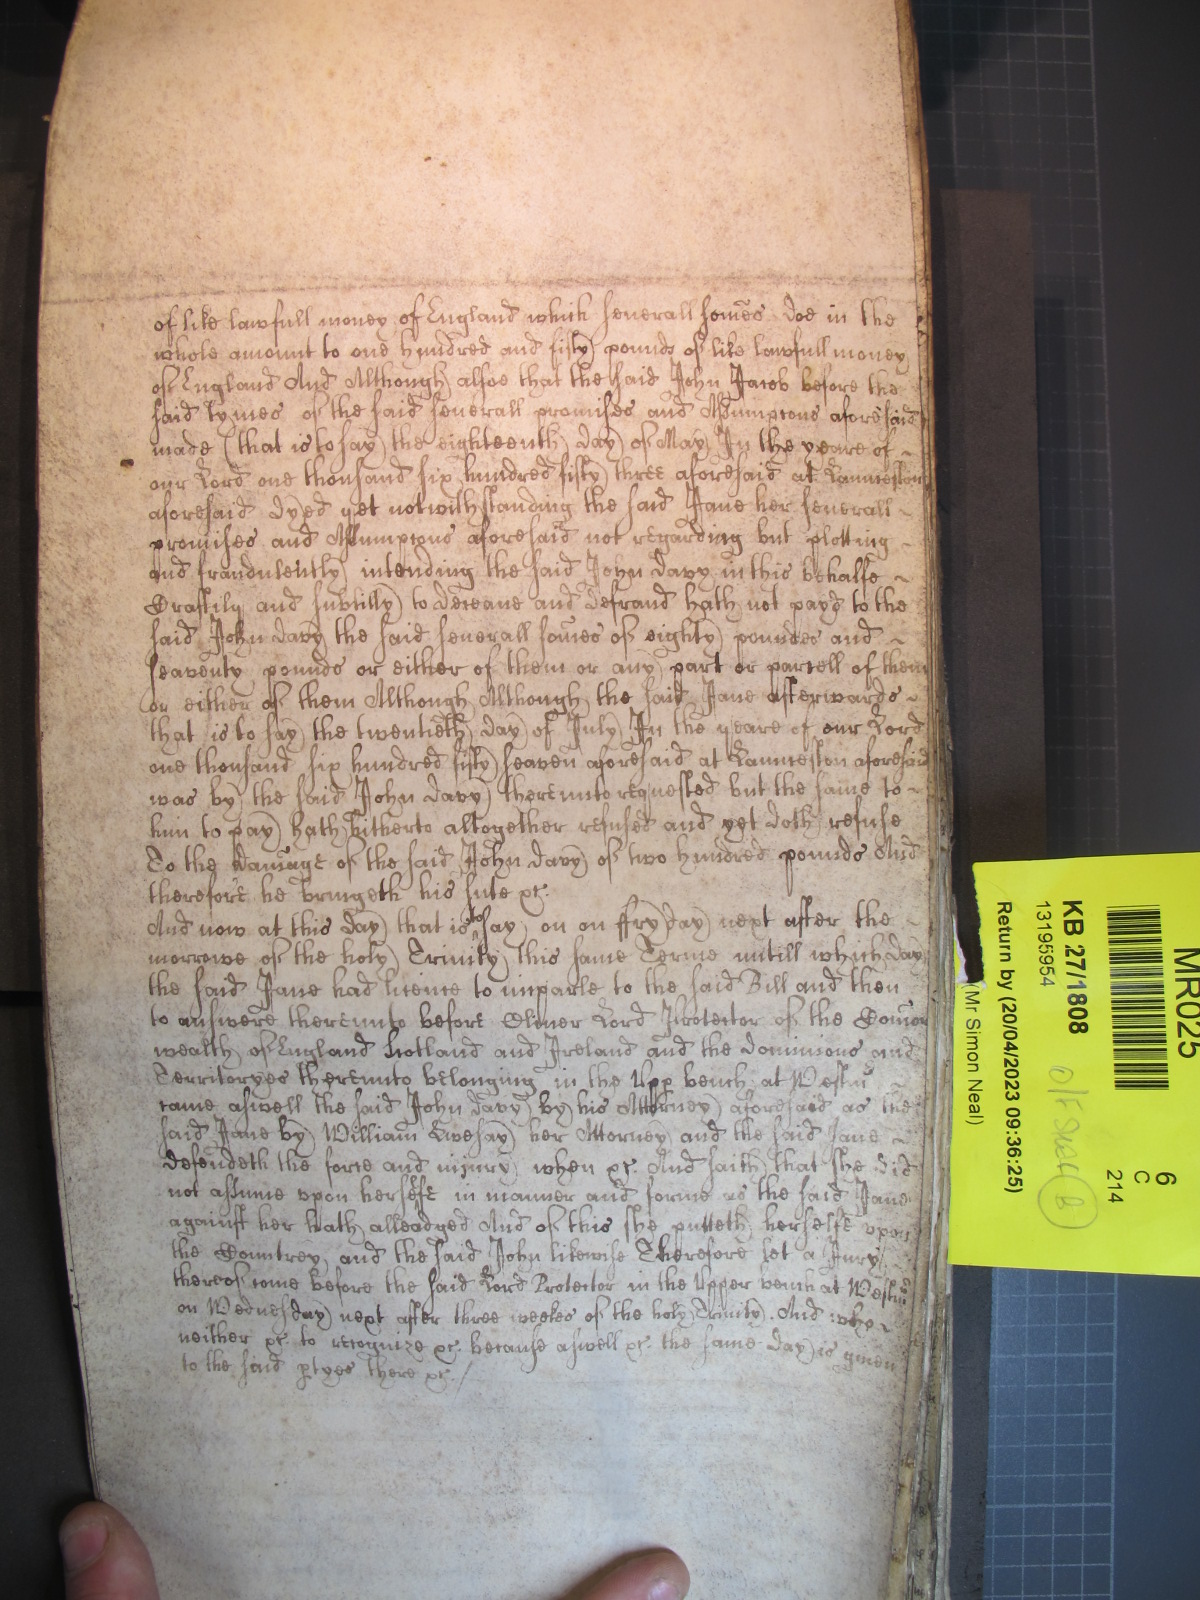 of like lawfull money of England which severall somes doe in the
whole amount to one hundred and fifty pounds of like lawfull money
of England And Although alsoe that the said John Jacob before the
said tymes of the said severall promises and Assumpcons aforesaid
made (that is to say) the eighteenth day of May In the yeare of
our Lord one thousand six hundred fifty three aforesaid at Launceston
aforesaid dyed yet notwithstanding the said Jane her severall
promises and Assumpcons aforesaid not regarding but plotting
and fraudulently intending the said John Davy in this behalfe
Craftily and subtilly to deceave and defraud hath not payd to the
said John Davy the said severall somes of eighty poundes and
seaventy pounds or either of them or any part or parcell of them
or either of them Although Although the said Jane afterwards
that is to say the twentieth day of July In the yeare of our Lord
one thousand six hundred fifty seaven aforesaid at Launceston aforesaid
was by the said John Davy thereunto requested but the same to
him to pay hath hitherto altogether refused and yet doth refuse
To the damage of the said John Davy of two hundred pounds And
therefore he bringeth his sute &c.
And now at this day that is to say on on ffryday next after the
morrowe of the holy Trinity this same Terme untill which day
the said Jane had licence to imparle to the said Bill and then
to answere thereunto before Oliver Lord Protector of the Comon
wealth of England Scotland and Ireland and the dominions and
Territoryes thereunto belonging in the Upp bench at Westm
came aswell the said John Davy by his Attorney aforesaid as the
said Jane by William Livesay her Attorney and the said Jane
defendeth the force and injury when &c. And saith that she did
not assume upon herselfe in manner and forme as the said Jane
against her hath alleadged And of this she putteth herselfe upon
the Countrey, and the said John likewise Therefore let a Jury
thereof come before the said Lord Protector in the Upper bench at Westm
on Wednesday next after three weekes of the holy Trinity. And who
neither &c. to recognize &c. because aswell &c. the same day is given
to the said ptyes there &c./
MR025
6
C
214
KB 27/1808
13195954
Return by (20/04/2023 09:36:25)
(Mr Simon Neal)